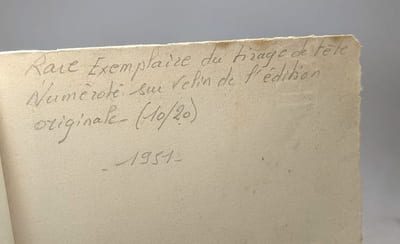 Rare Exemplaire du tirage de tête
Numéroté sur velin de l'édition
originale - (10/20)
- 1951 -